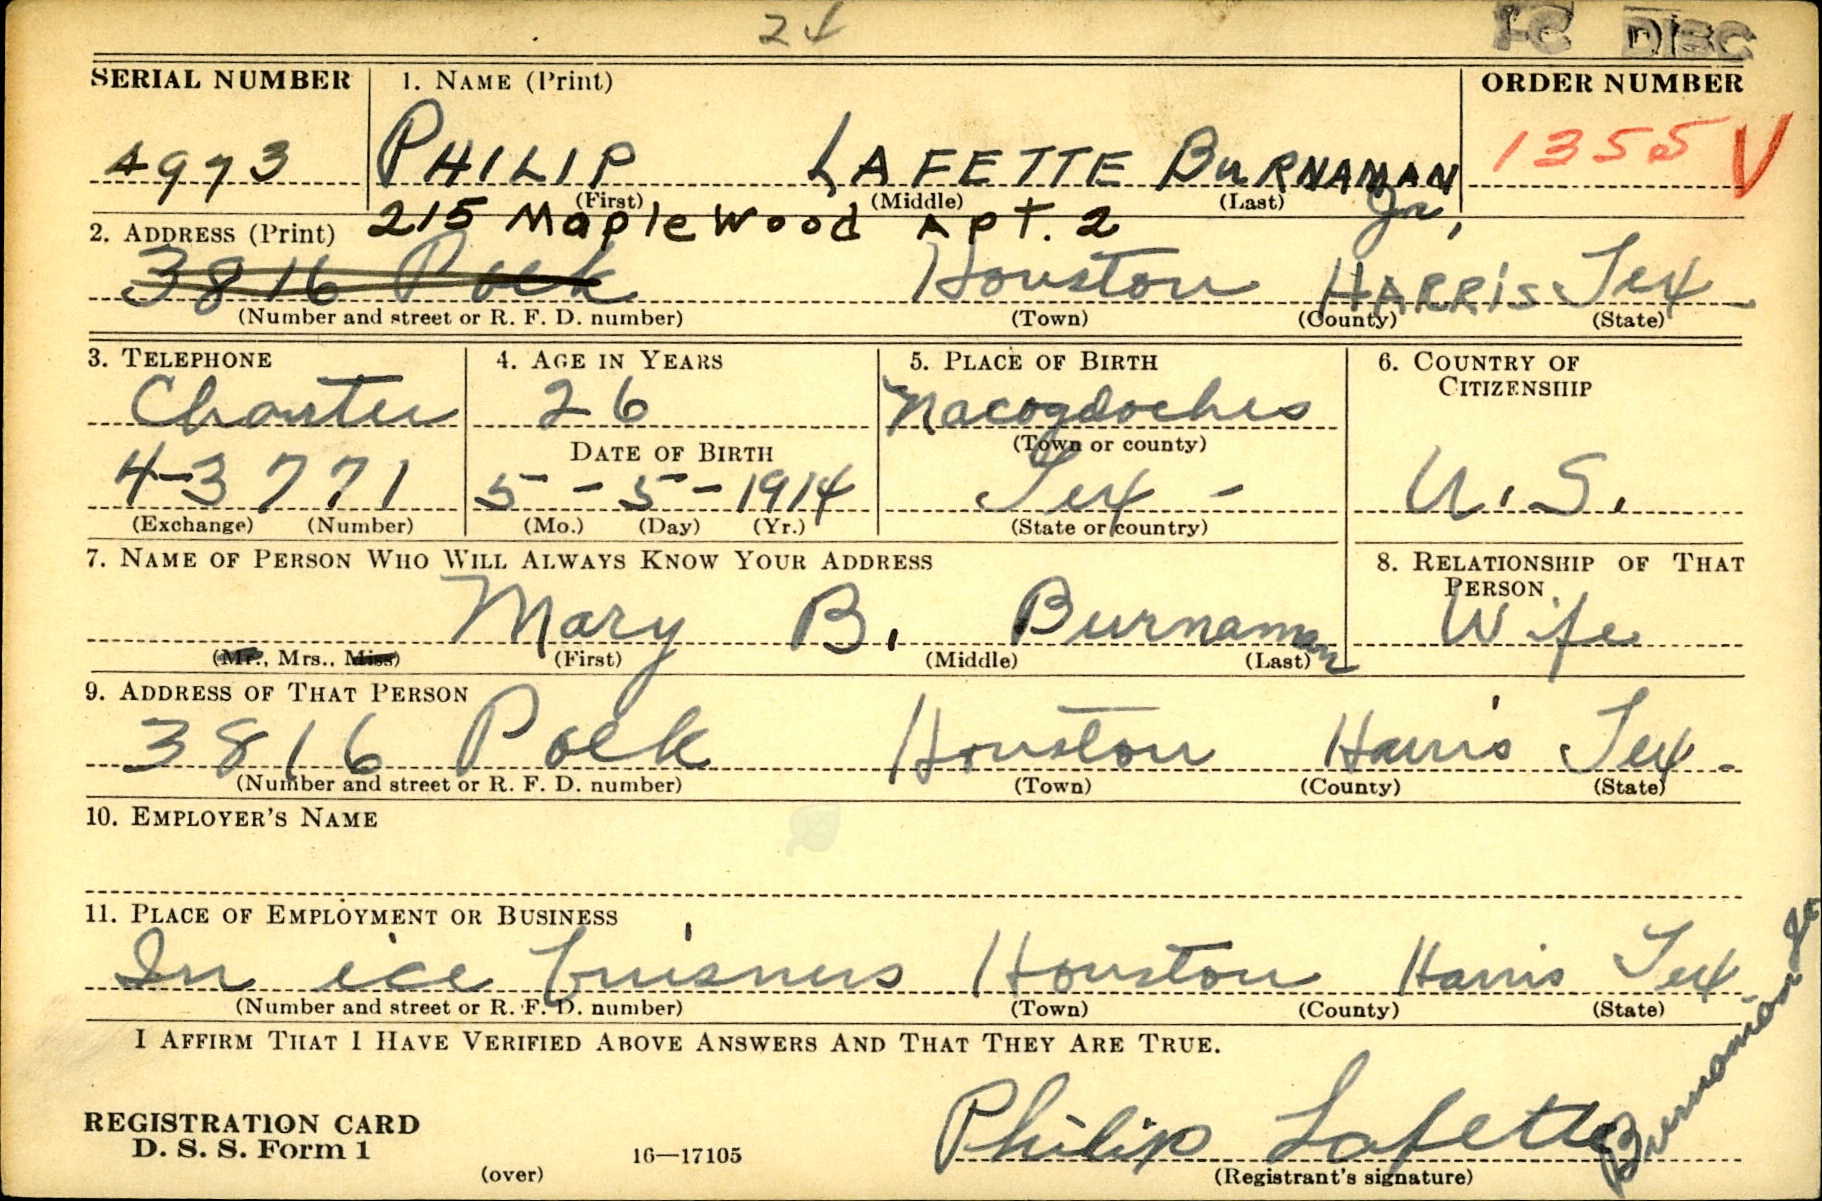 24 I-C DISC
SERIAL NUMBER 1. NAME (Print) ORDER NUMBER
4973 PHILIP LAFETTE BURNAMAN Jr, 1355 V
(First) (Middle) (Last)
215 Maplewood Apt. 2
2. ADDRESS (Print)
3816 Polk Houston HARRIS Tex
(Number and street or R. F. D. number) (Town) (County) (State)
3. TELEPHONE 4. AGE IN YEARS 5. PLACE OF BIRTH 6. COUNTRY OF CITIZENSHIP
Charter 26 Nacogdoches
DATE OF BIRTH (Town or county)
4-3771 5-5-1914 Tex - U.S.
(Exchange) (Number) (Mo.) (Day) (Yr.) (State or country)
7. NAME OF PERSON WHO WILL ALWAYS KNOW YOUR ADDRESS 8. RELATIONSHIP OF THAT PERSON
Mary B. Burnaman Wife
(Mr., Mrs., Miss) (First) (Middle) (Last)
9. ADDRESS OF THAT PERSON
3816 Polk Houston Harris Tex.
(Number and street or R. F. D. number) (Town) (County) (State)
10. EMPLOYER'S NAME
11. PLACE OF EMPLOYMENT OR BUSINESS
In ice Houston Harris Tex.
(Number and street or R. F. D. number) (Town) (County) (State)
I AFFIRM THAT I HAVE VERIFIED ABOVE ANSWERS AND THAT THEY ARE TRUE.
Philip Lafette Burnaman Jr
REGISTRATION CARD
D. S. S. Form 1 16—17105 (Registrant's signature)
(over)